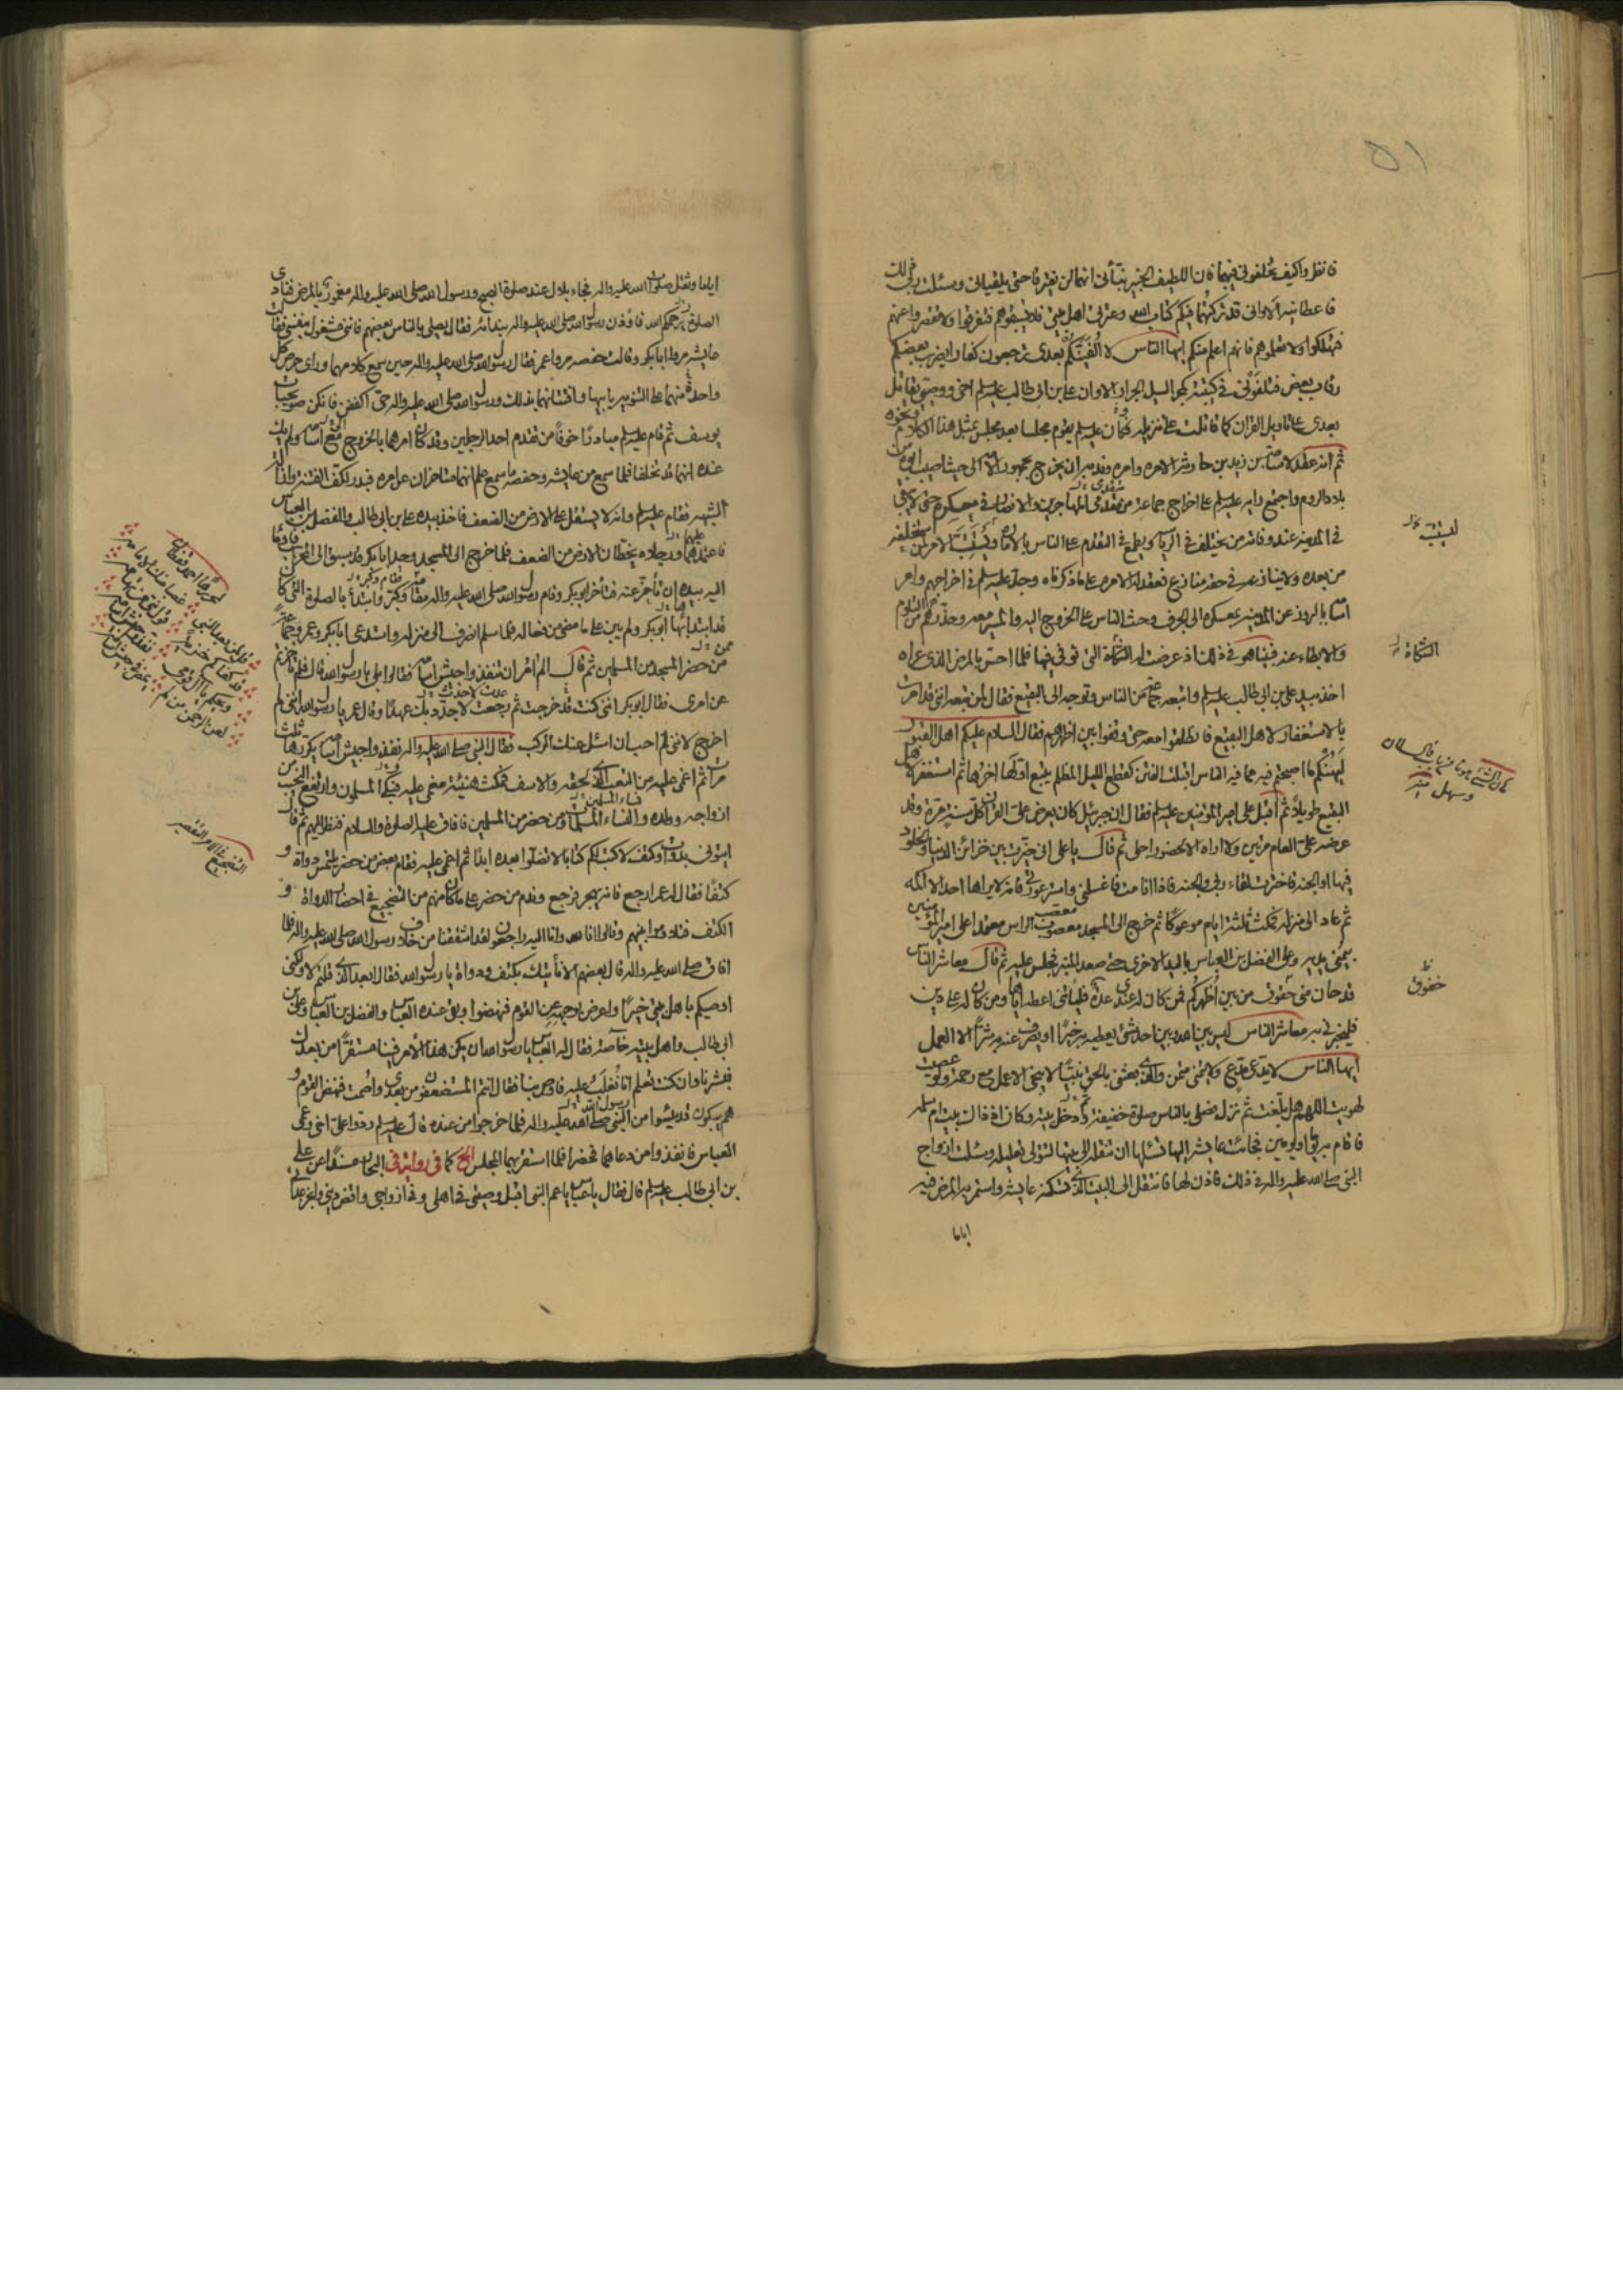 ٥١
فانظروا كيف تخلفوني فيهما فان اللطيف الخبير نبّأني انهما لن يفترقا حتى يلقياني وسئلت ربي ذلك
فاعطانيه الا وانى قد تركتهما فيكم كتاب الله وعترتى اهل بيتى فلا تسبقوهم فتفرقوا ولا تقصروا عنهم
فتهلكوا ولا تعلموهم فانهم اعلم منكم ايها الناس لا اُلفينّكم بعدى ترجعون كفارا يضرب بعضكم
رقاب بعض فتلقونى فى كتيبة كمجرّ السيل الجرار الا وان على بن ابى طالب عليه السلم اخى ووصيّى يقاتل
بعدى على تاويل القران كما قاتلت على تنزيله وكان عليه السلم يقوم مجلسا بعد مجلس بمثل هذا الكلام ونحوه
ثم انه عقد لاسامة بن زيد بن حارثة الامره وامره وندبه ان يخرج بجمهور الامة الى حيث اصيب ابوه من
بلاد الروم واجتمع رايه عليه السلم على اخراج جماعة من مقدمى المهاجرين والانصار فى معسكره حتى لا يبقى
فى المدينة عند وفاته من يختلف فى الرياسة ويطمع فى التقدم على الناس بالامارة ويستتبّ الامر لمن استخلفه
من بعده ولا ينازعه فى حقه منازع فعقد له الامره على ما ذكرناه وجدّ عليه السلم فى اخراجهم وامر
اسامة بالبروز عن المدينة بمعسكره الى الجرف وحث الناس على الخروج اليه والمسير معه وحذّرهم من التلوّم
والابطاء عنه فبينا هو فى ذلك اذ عرضت له الشكاة التى توفى فيها فلما احسّ بالمرض الذى عراه
اخذ بيد على بن ابى طالب عليه السلم واتبعه جماعة من الناس وتوجه الى البقيع فقال لمن تبعه اننى قد امرت
بالاستغفار لاهل البقيع فانطلقوا معه حتى وقفوا بين اظهرهم فقال السلام عليكم اهل القبور
ليهنئكم ما اصبحتم فيه مما فيه الناس اقبلت الفتن كقطع الليل المظلم يتبع اوّلها اخرها ثم استغفر لاهل
البقيع طويلاً ثم اقبل على امير المؤمنين عليه السلم فقال ان جبرئيل كان يعرض علىّ القران كل سنة مرة وقد
عرضه علىّ العام مرتين ولا اراه الا لحضور اجلى ثم قال يا على انى خيّرت بين خزائن الدنيا والخلود
فيها او الجنة فاخترت لقاء ربى والجنة فاذا انا مت فاغسلنى واستر عورتى فانه لا يراها احد الا اكمه
ثم عاد الى منزله فمكث ثلثة ايام موعوكا ثم خرج الى المسجد معصوب الراس معتمدا على امير المؤمنين
بيمنى يديه وعلى الفضل بن العباس باليد الاخرى حتى صعد المنبر فجلس عليه ثم قال معاشر الناس
قد حان منى خفوق من بين اظهركم فمن كان له عندى عدة فلياتنى اعطه اياها ومن كان له على دين
فليخبرنى به معاشر الناس ليس بين الله وبين احد شئ يعطيه به خيرًا او يصرف عنه به شرًّا الا العمل
ايها الناس لا يدّعى مدّع ولا يتمنى متمن والذى بعثنى بالحق نبيًّا لا ينجى الا عمل مع رحمة ولو عصيت
لهويت اللهم هل بلّغت ثم نزل فصلى بالناس صلوة خفيفة ثم دخل بيته وكان اذ ذاك بيت ام سلمه
فاقام به يوما او يومين فجائت عايشه اليها تسئلها ان تنقله الى بيتها لتتولى تعليله وسئلت ازواج
النبى صلى الله عليه واله فى ذلك فاذن لها فانتقل الى البيت الذى تسكنه عايشه واستمر به المرض فيه
اياما
ليستتب
الشكاة
خفوق
اياما وثقل صلوات الله عليه واله فجاء بلال عند صلوة الصبح ورسول الله صلى الله عليه واله مغمور بالمرض فنادى
الصلوة يرحمكم الله فاوذن رسول الله صلى الله عليه واله بندائه فقال يصلى بالناس بعضهم فاننى مشغول بنفسى فقالت
عايشه مروا ابابكر وقالت حفصه مروا عمر فقال رسول الله صلى الله عليه واله حين سمع كلامهما وراى حرص كل
واحدة منهما على التنويه بابيها وافتتانهما بذلك ورسول الله صلى الله عليه واله حى اكففن فانكن صويحبات
يوسف ثم قام عليه السلم مبادرًا خوفًا من تقدم احد الرجلين وقد كان امرهما بالخروج مع اسامة ولم يك
عنده انهما قد تخلفا فلما سمع من عايشه وحفصه ما سمع علم انهما متاخران عن امره فبدر لكفّ الفتنة وازالة
الشبهه فقام عليه السلم وانه لا يستقل على الارض من الضعف فاخذ بيده على بن ابى طالب والفضل بن العباس
فاعتمدهما ورجلاه يخطّان الارض من الضعف فلما خرج الى المسجد وجد ابا بكر قد سبق الى المحراب فاومأ
اليه بيده ان تأخّر عنه فتأخر ابوبكر وقام رسول الله صلى الله عليه واله مقامه وكبّر وابتدأ بالصلوة التى كان
قد ابتدأبها ابوبكر ولم يبن على ما مضى من فعاله فلما سلم انصرف الى منزله واستدعى ابابكر وعمر وجماعة
من حضر المسجد من المسلمين ثم قال الم امر ان تنفذوا جيش اسامة فقالوا بلى يا رسول الله قال فلم تاخرتم
عن امرى فقال ابوبكر اننى كنت قد خرجت ثم رجعت لاجدّد بك عهدًا وقال عمر يا رسول الله اننى لم
اخرج لاننى لم احب ان اسئل عنك الركب فقال النبى صلى الله عليه واله نفذوا جيش اسامة يكررها ثلث
مرات ثم اغمى عليه من التعب الذى لحقه والاسف فمكث هنيئة مغمى عليه فبكى المسلمون وارتفع النحيب من
ازواجه وولده والنساء المسلمات ومن حضر من المسلمين فافاق عليه الصلوة والسلام فنظر اليهم ثم قال
ايتونى بدواة وكتف لاكتب لكم كتابا لا تضلوا بعده ابدًا ثم اغمى عليه فقام بعض من حضر يلتمس دواة و
كتفًا فقال له عمر ارجع فانه يهجر فرجع وندم من حضر على ما كان منهم من التضجيع فى احضار الدواة و
الكتف فتلاوموا بينهم وقالوا انا لله وانا اليه راجعون لقد اشفقنا من خلاف رسول الله صلى الله عليه واله فلما
افاق صلى الله عليه واله قال بعضهم الا نأتيك بكتف ودواة يا رسول الله فقال ابعد الذى قلتم لا ولكنى
اوصيكم باهل بيتى خيرًا واعرض بوجهه عن القوم فنهضوا وبقى عنده العباس والفضل بن العباس وعلى بن
ابى طالب واهل بيته خاصة فقال له العباس يا رسول الله ان يكن هذا الامر فينا مستقرًّا من بعدك
فبشرنا وان كنت تعلم انا نُغلَب عليه فاوص بنا فقال انتم المستضعفون من بعدى واصمت فنهض القوم و
هم يبكون قد يئسوا من النبى صلى الله عليه واله فلما خرجوا من عنده قال عليه السلم ردوا علىّ اخى وعمى
العباس فانفذوا من دعاهما فحضرا فلما استقر بهما المجلس الخ كما فى رواية فى البحار مسندًا عن على
بن ابى طالب عليه السلم قال فقال يا عباس يا عم النبى اقبل وصيتى فى اهلى وفى ازواجى واقض دينى وانجز عداتى
التضجيع فى الامر التقصير